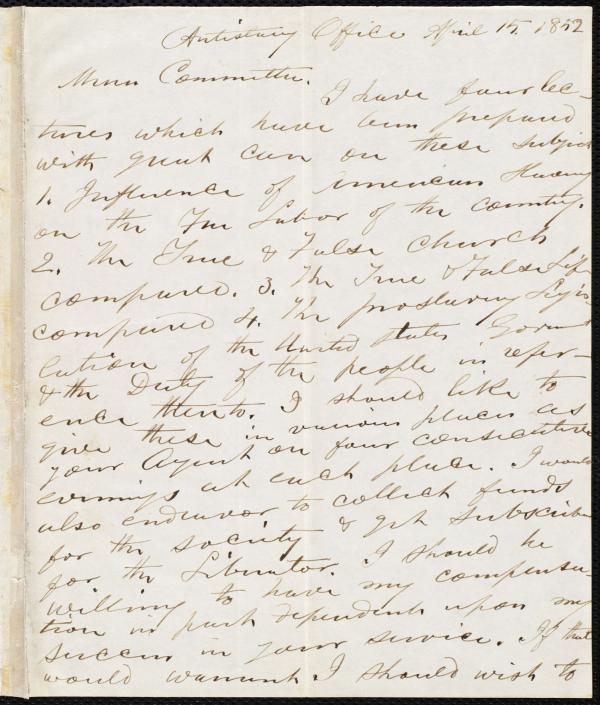 Antislavery Office April 15, 1852
Messrs Committee.
I have four lec-
tures which have been prepared
with great care on these subjects
1. Influence of American Slavery
on the Free Labor of the country.
2. The True & False Church
compared. 3. The True & False Life
compared 4. The proslavery Legis-
lation of the United States Governt
& the Duty of the people in refer-
ence thereto. I should like to
give these in various places as
your Agent on four consecutive
evenings at each place. I would
also endeavor to collect funds
for the society & get subscribers
for the Liberator. I should be
willing to have my compensa-
tion in part dependent upon my
success in your service. If that
would warrant I should wish to